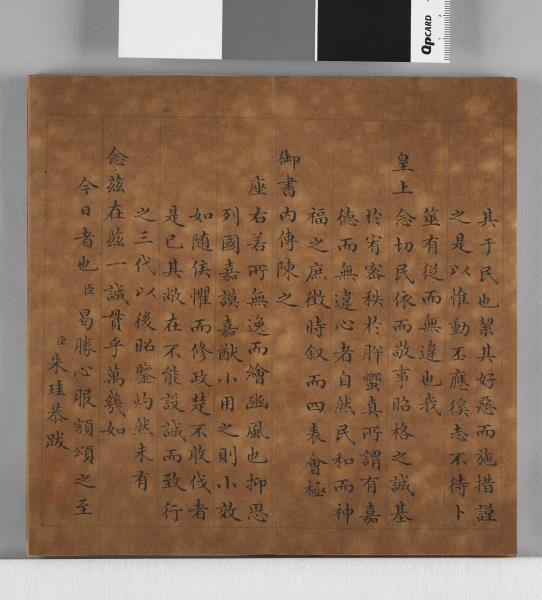 其于民也絜其好惡而施措謹
之是以惟動丕應徯志不待卜
筮有從而無違也我
皇上念切民依而敬事昭格之誠基
於宥密秩於肸蠁真所謂有嘉
徳而無違心者自然民和而神
福之庶徴時叙而四表會極
御書内傳陳之
座右若所無逸而繪豳風也抑思
列國嘉謨嘉猷小用之則小效
如随侯懼而修政楚不敢伐者
是已其敝在不能設誠而致行
之三代以後昭鑒灼然未有
念茲在茲一誠貫乎萬幾如
今日者也臣曷勝心服額頌之至
臣朱珪恭跋
QPCARD